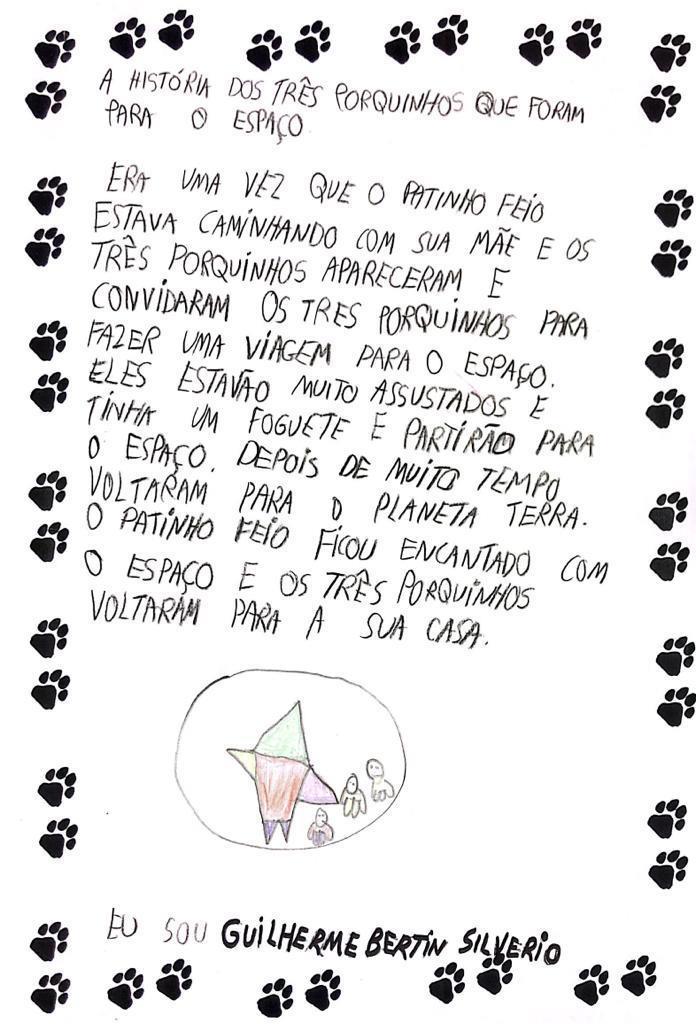 A HISTÓRIA DOS TRÊS PORQUINHOS QUE FORAM
PARA O ESPAÇO
ERA UMA VEZ QUE O PATINHO FEIO
ESTAVA CAMINHANDO COM SUA MÃE E OS
TRÊS PORQUINHOS APARECERAM E
CONVIDARAM OS TRES PORQUINHOS PARA
FAZER UMA VIAGEM PARA O ESPAÇO.
ELES ESTAVÃO MUITO ASSUSTADOS E
TINHA UM FOGUETE E PARTIRÃO PARA
O ESPAÇO. DEPOIS DE MUITO TEMPO
VOLTARAM PARA O PLANETA TERRA.
O PATINHO FEIO FICOU ENCANTADO COM
O ESPAÇO E OS TRÊS PORQUINHOS
VOLTARAM PARA A SUA CASA.
EU SOU GUILHERME BERTIN SILVERIO